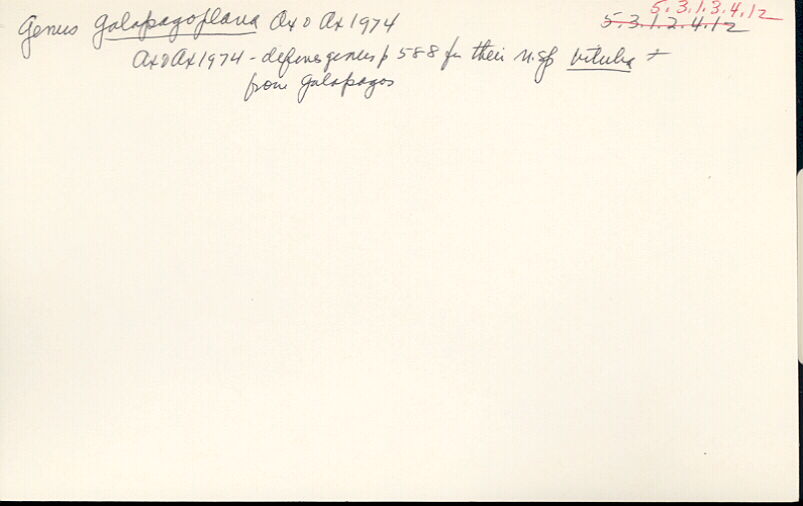 5.3.1.3.4.12
Genus Galapagoplana Ax & Ax 1974 5.3.1.2.4.12
Ax & Ax 1974 - defines genus p 588 for their n.sp vituba +
from Galapagos